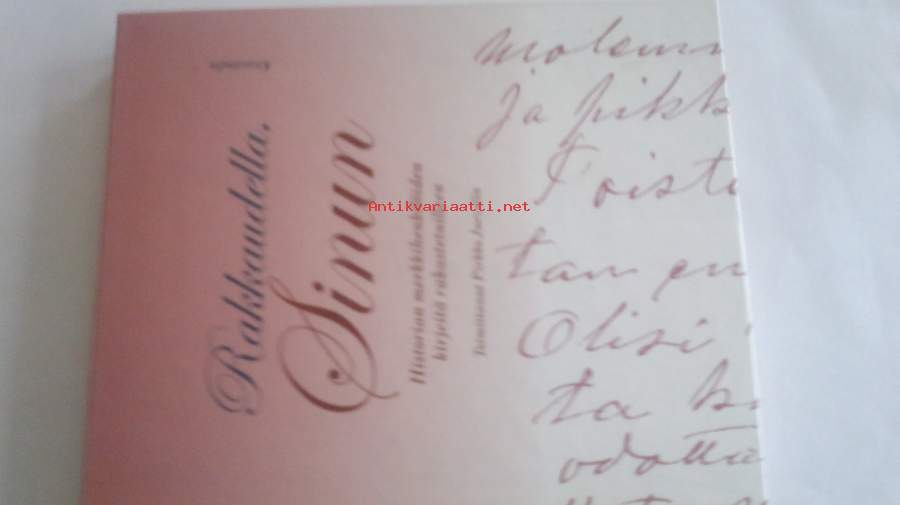 Rakkaudella,
Sinun
Historian merkkihenkilöiden
kirjeitä rakastetuilleen
Toimittanut Pirkko
Antikvariaatti.net
ja pikk
Toist
tan en
Olisi
ta k
odotta